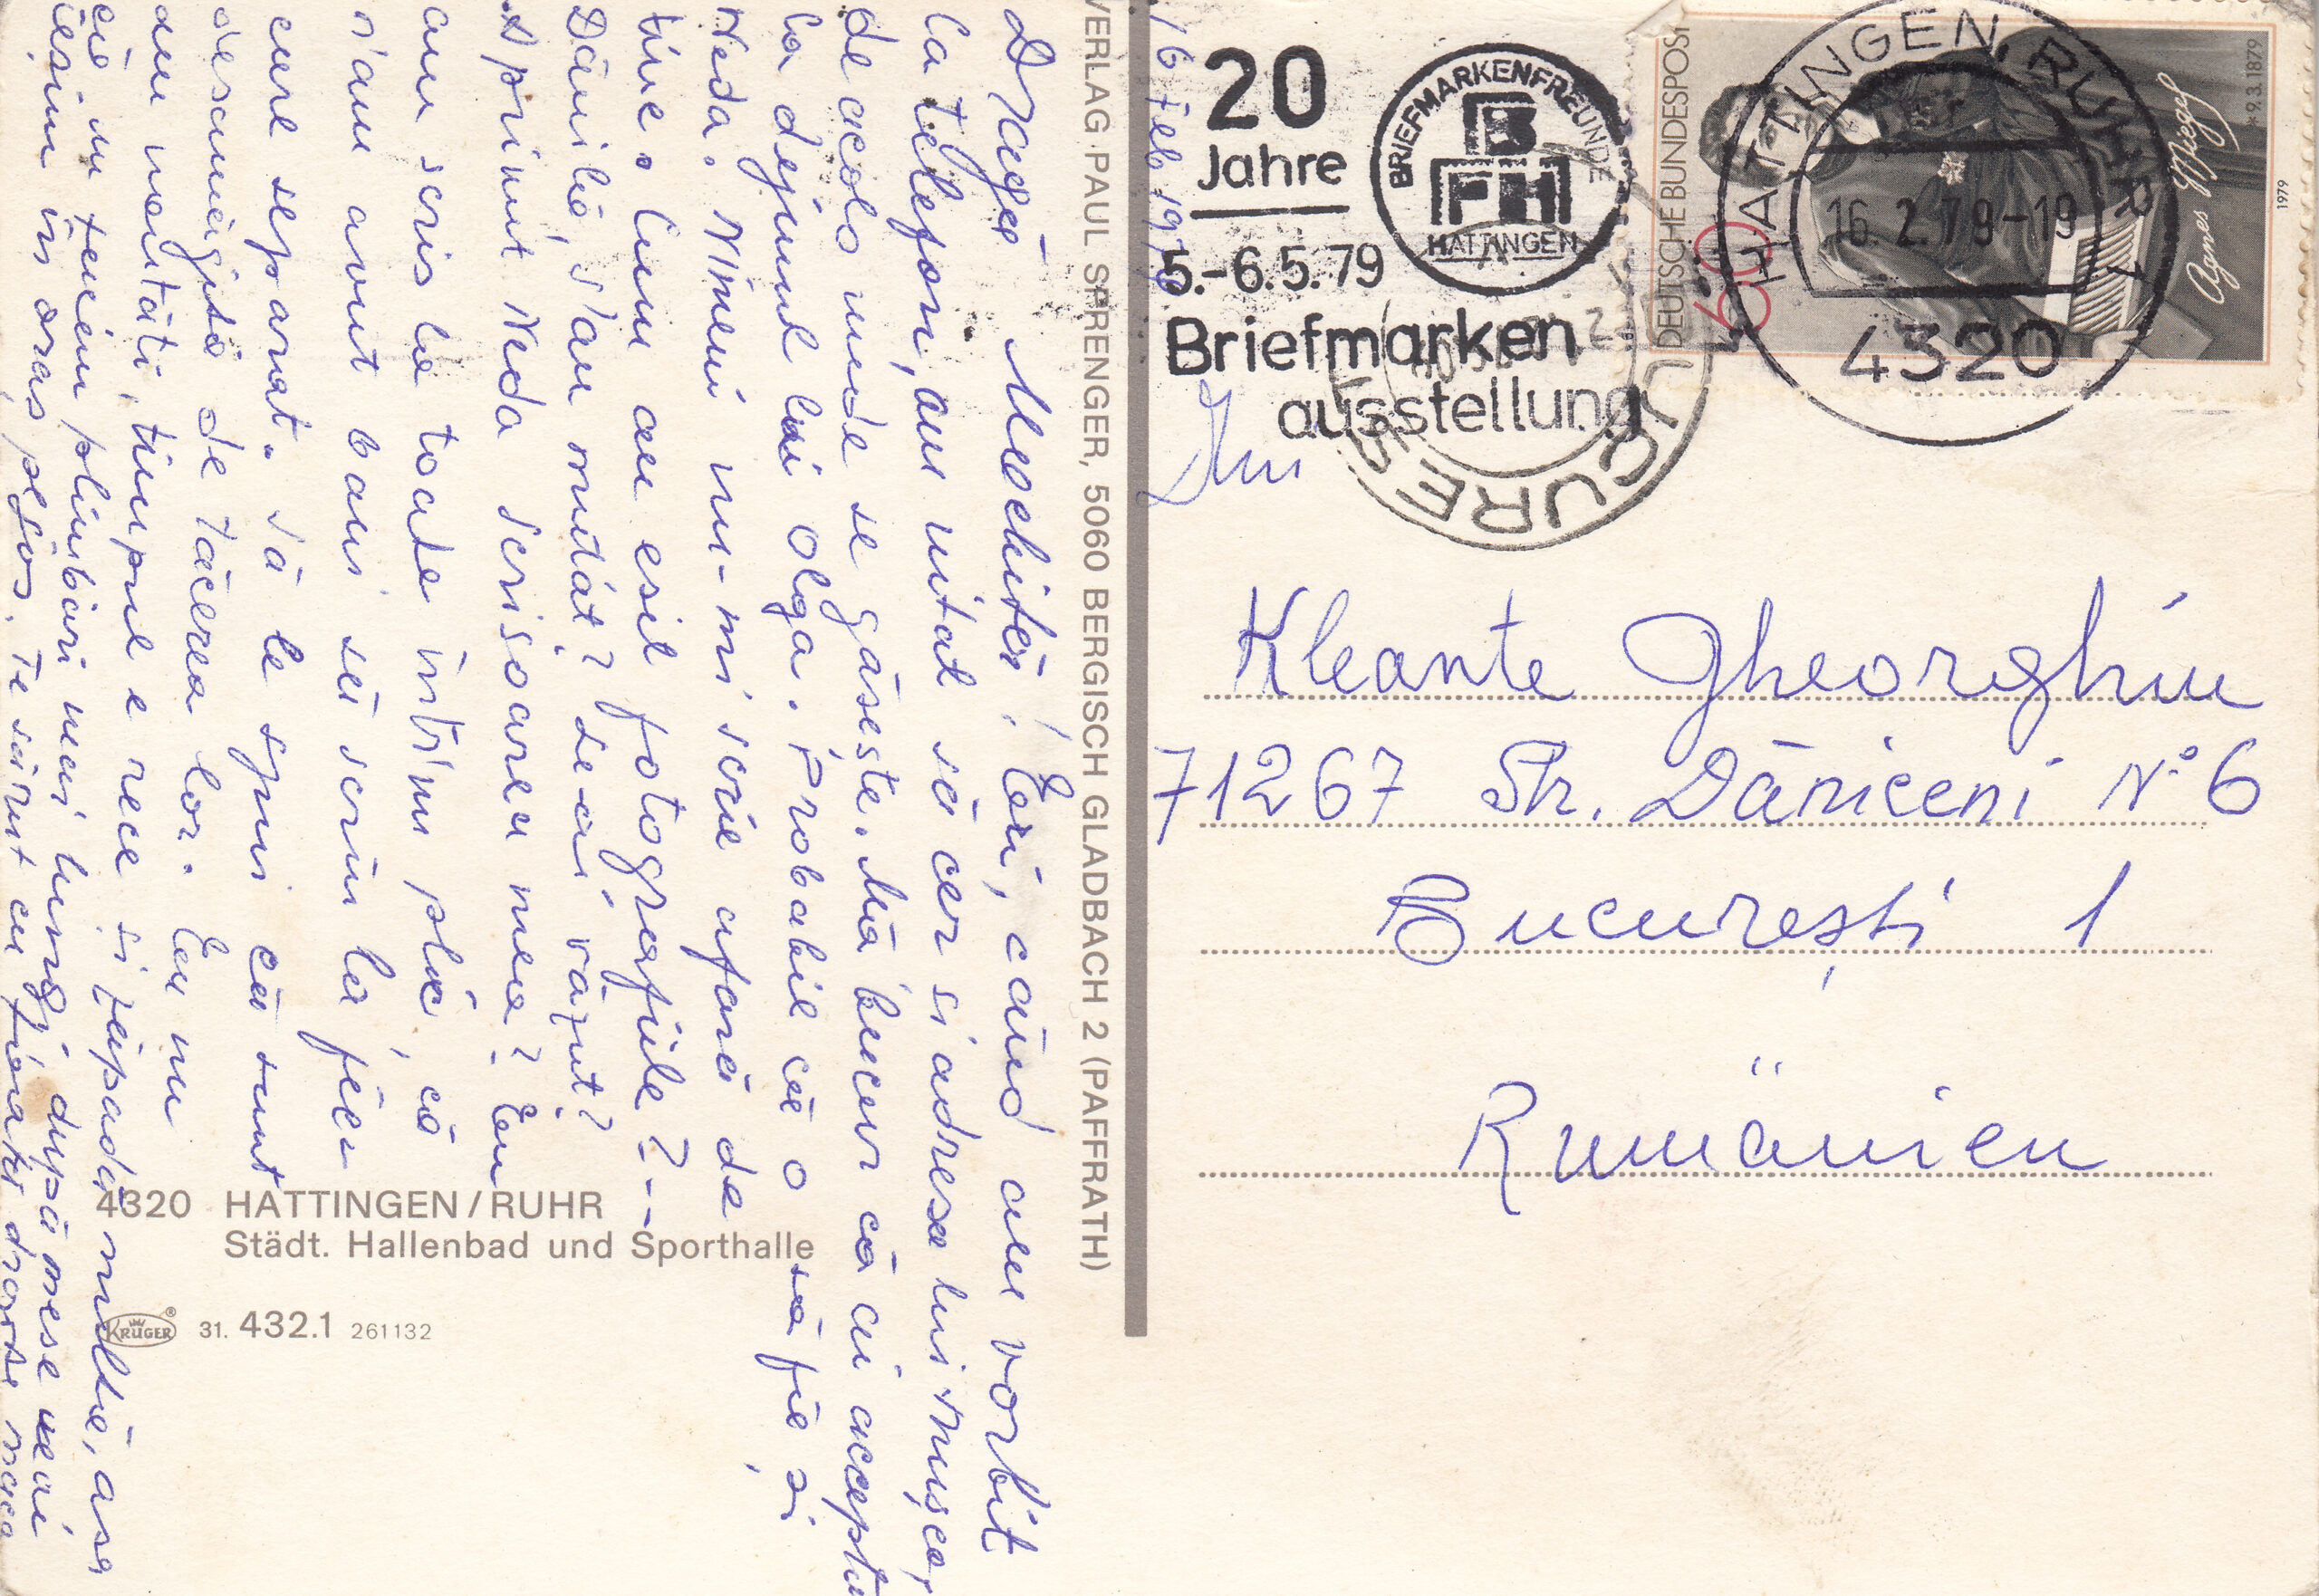 Dragă Mochiței! Eri, când am vorbit
la telefon, am uitat să cer și adresa lui
de acolo unde se găsește. Mă bucur că ai acceptat
la dejunul lui Olga. Probabil că o să fie și
Neda. Nimeni nu-mi scrie afară de
tine. Cum au esit fotografiile? ---
Dănilă, s'au mutat? Le-ai văzut?
A primit Neda scrisoarea mea? Eu
am scris la toate într'un plic, că
n'am avut bani să scriu la fie
care separat. Să le spui că sunt
desamăgită de tăcerea lor. Eu nu
am noutăți, timpul e rece și zăpadă multă, așa
că nu facem plimbări mai lungi, după mese mai
ieșim în oraș pe jos. Te sărut cu
VERLAG PAUL SPRENGER, 5060 BERGISCH GLADBACH 2 (PAFFRATH)
4320 HATTINGEN/RUHR
Städt. Hallenbad und Sporthalle
KRÜGER® 31. 432.1 261132
16 Feb 1979
20
Jahre
5.-6.5.79
Briefmarken
ausstellung
BRIEFMARKENFREUNDE
BFH
HATTINGEN
DEUTSCHE BUNDESPOST
60
Agnes Miegel
* 9.3.1879
1979
HATTINGEN, RUHR 1
16.2.79-19
4320
BUCUREȘTI
Kleante Gheorghiu
71267 Str. Dăniceni N° 6
București 1
Rumänien